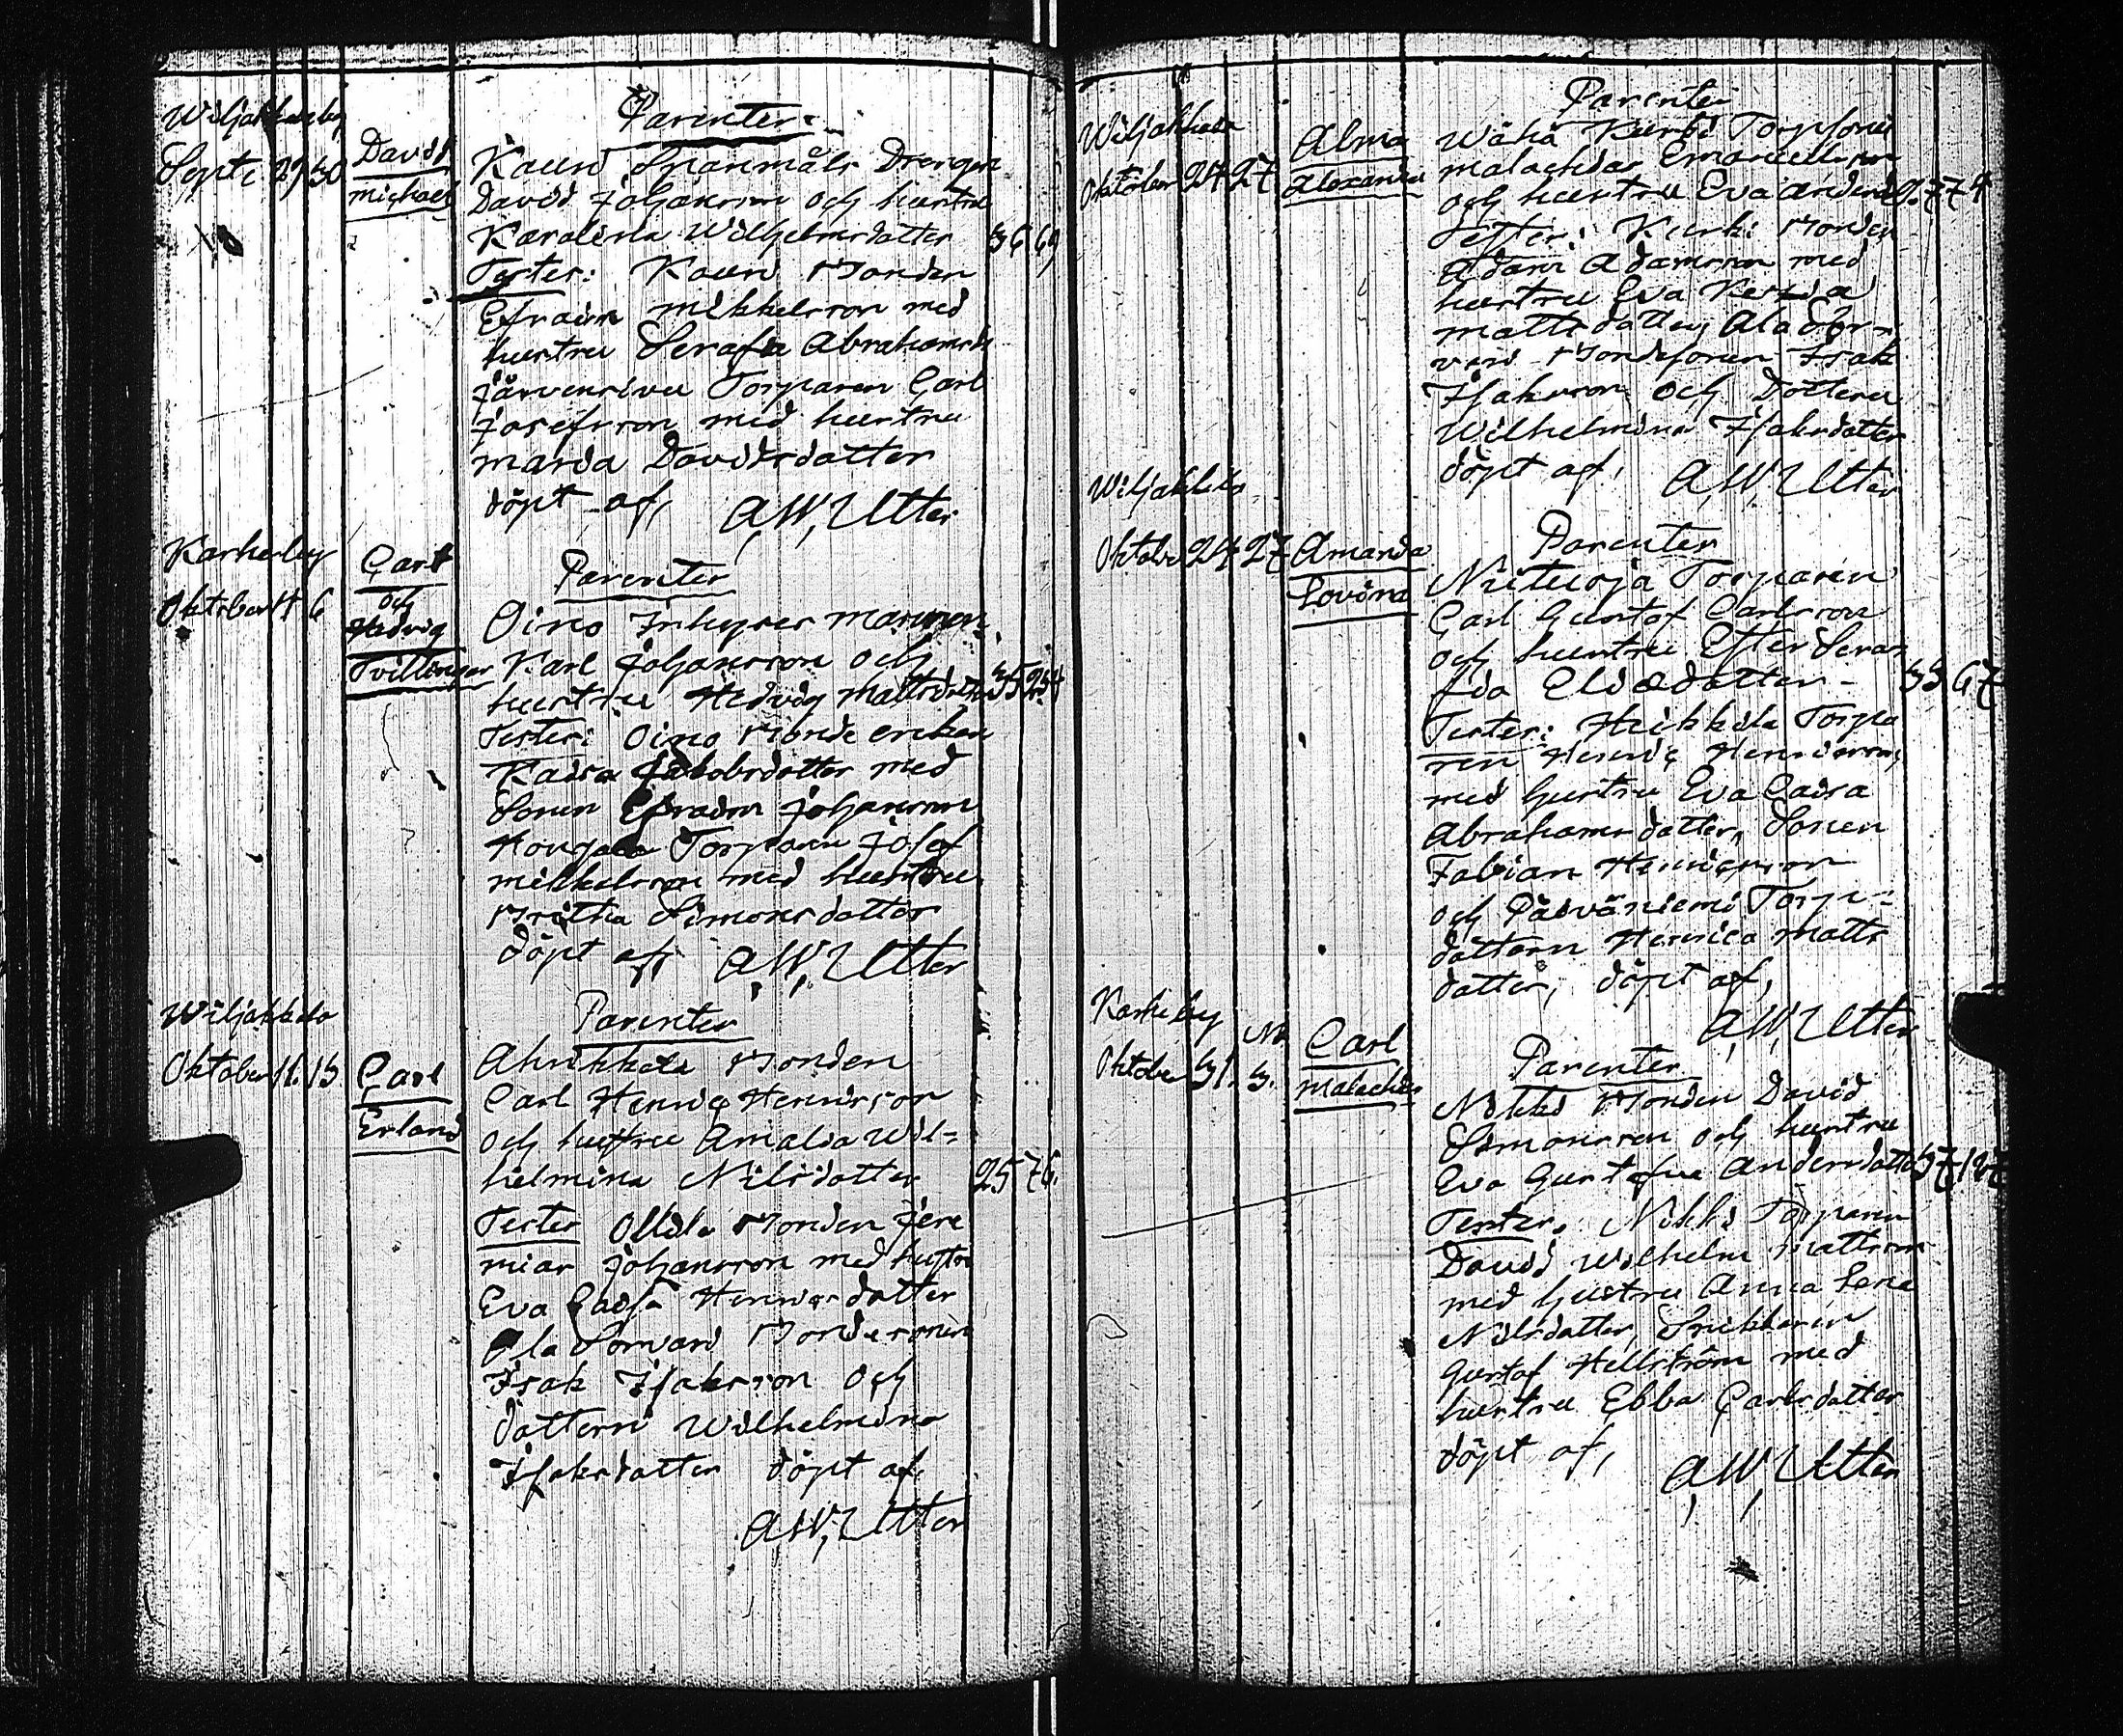 Parenter
Wiljakkalaby
Sept: 29 30
David
Michael
Kauri Spanmåls Drengen
David Johansson och hustru
Karolina Wilhelmsdotter 36 69
Tester: Kauri Bonden
Efraim Mikkelsson med
hustru Serafia Abrahamsdr
Järvensivu Torparen Carl
Josefsson med hustru
Maria Davidsdotter
döpt af, A W, Utter
Karhe by
Oktober 4 6
Carl
och
Hedvig
Tvillingar
Parenter
Oino Inhyses mannen
Karl Johansson och
hustru Hedvig Mattsdotter 35 234
Tester: Oino Bonde enkan
Kaisa Jakobsdotter med
Sonen Efraim Johansson
Torparen Josef
Mikkelsson med hustru
Britha Simonsdotter
döpt af, A W, Utter
Wiljakkala
Oktober 11. 13
Carl
Erland
Parenter
Ahrikkala Bonden
Carl Henric Henricsson
och hustru Amalia Wil=
helmina Nilsdotter 25 76.
Tester Ollila Bonden Jere
mias Johansson med hustru
Eva Caisa Henricsdotter
Ala Sorvari Bondesonen
Isak Isaksson och
dottern Wilhelmina
Isaksdotter döpt af,
A W, Utter
Wiljakkala
Oktober 24 27
Alma
Alexandra
Parenter
Wähä Kurki Torpsonen
Malachias Emanuelsson
och hustru Eva Andersd
Tester: Kurki Bonden
Adam Adamsson med
hustru Eva
Mattsdotter, Ala Sor=
vari Bondesonen Isak
Isaksson och Dottern
Wilhelmina Isaksdotter
döpt af, A W, Utter
Wiljakkala
Oktober 24 27
Amanda
Lovisa
Parenter
Niituoja Torparen
Carl Gustaf Carlsson
och hustru Ester Sera=
fia Eliædotter - 33 67
Tester: Heikkila Torpa
ren Henric Henricsson,
med hustru Eva Caisa
Abrahamsdotter, Sonen
Fabian Henricsson
och Päiväniemi Torp=
dottern Henrica Matts
dotter, döpt af,
A W, Utter
Karhe by
Oktober 31. 3.
Carl
Malachias
Parenter
Nikki Bonden David
Simonsson och hustru
Eva Gustafva Andersdotter 37 127
Tester. Nikki Torparen
David Wilhelm Mattsson
med hustru Anna Lena
Nilsdotter, Snikkaren
Gustaf Hellström med
hustru Ebba Carlsdotter
döpt af, A W, Utter